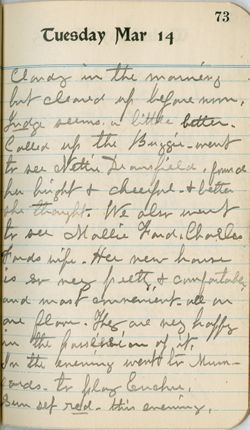 73
Tuesday Mar 14
Cloudy in the morning
but cleared up before noon.
Judge seems a little better.
Called up the Buggie - went
to see Nettie Dransfield, found
her bright & cheerful - & better
she thought. We also went
to see Mollie Ford, Charles
Fords wife. Her new house
is so very pretty, & comfortable,
and most convenient all on
one floor. They are very happy
in the possession of it.
In the evening went to Mum-
fords - to play Euchre.
Sun set red - this evening.